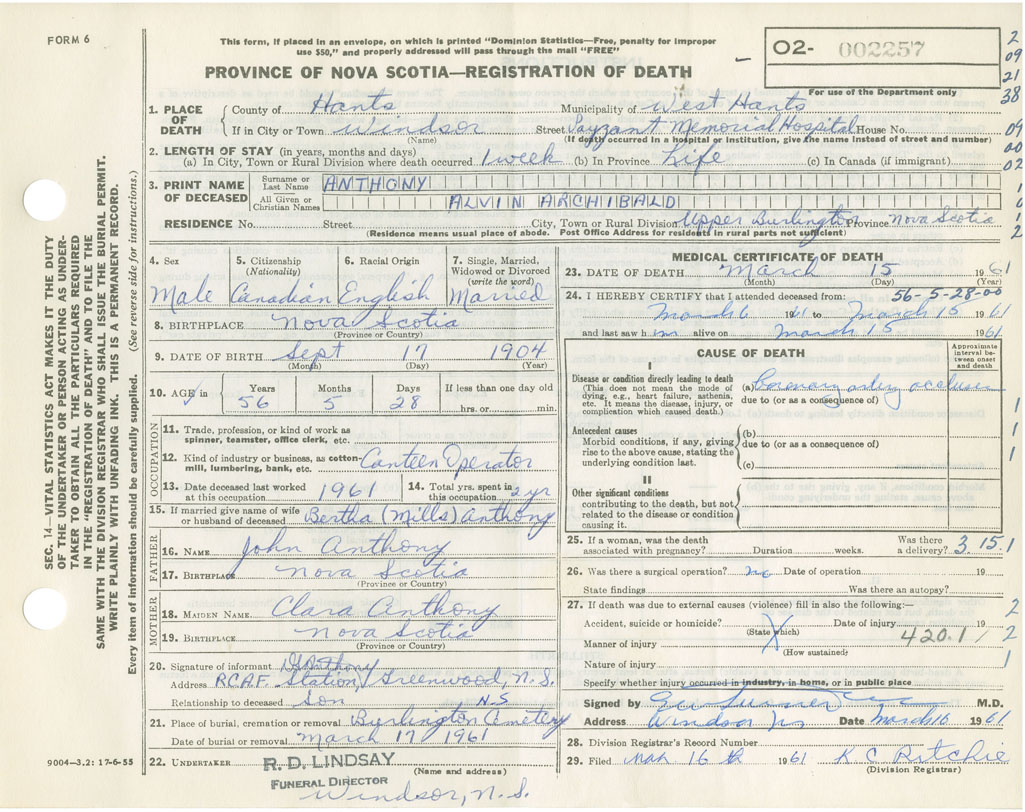 FORM 6
This form, if placed in an envelope, on which is printed "Dominion Statistics—Free, penalty for improper
use $50," and properly addressed will pass through the mail "FREE"
PROVINCE OF NOVA SCOTIA—REGISTRATION OF DEATH
02- 002257
For use of the Department only
2
09
21
38
09
00
02
1. PLACE OF DEATH
County of Hants Municipality of West Hants
If in City or Town Windsor Street Payzant Memorial Hospital House No.
(Name) (If death occurred in a hospital or institution, give the name instead of street and number)
2. LENGTH OF STAY (in years, months and days)
(a) In City, Town or Rural Division where death occurred 1 week (b) In Province Life (c) In Canada (if immigrant)
3. PRINT NAME OF DECEASED
Surname or Last Name ANTHONY
All Given or Christian Names ALVIN ARCHIBALD
RESIDENCE No. Street City, Town or Rural Division Upper Burlington Province Nova Scotia
(Residence means usual place of abode. Post Office Address for residents in rural parts not sufficient)
4. Sex Male
5. Citizenship (Nationality) Canadian
6. Racial Origin English
7. Single, Married, Widowed or Divorced (write the word) Married
8. BIRTHPLACE Nova Scotia
(Province or Country)
9. DATE OF BIRTH Sept 17 1904
(Month) (Day) (Year)
10. AGE in Years Months Days If less than one day old
56 5 28 hrs. or min.
OCCUPATION
11. Trade, profession, or kind of work as
spinner, teamster, office clerk, etc.
12. Kind of industry or business, as cotton-
mill, lumbering, bank, etc. Canteen Operator
13. Date deceased last worked at this occupation 1961
14. Total yrs. spent in this occupation 2 yr
15. If married give name of wife
or husband of deceased Bertha (Mills) Anthony
FATHER
16. NAME John Anthony
17. BIRTHPLACE Nova Scotia
(Province or Country)
MOTHER
18. MAIDEN NAME. Clara Anthony
19. BIRTHPLACE Nova Scotia
(Province or Country)
20. Signature of informant Anthony
Address R.C.A.F. Station, Greenwood, N.S.
Relationship to deceased Son N.S
21. Place of burial, cremation or removal Burlington Cemetery
Date of burial or removal March 17 1961
22. UNDERTAKER R. D. LINDSAY
(Name and address)
FUNERAL DIRECTOR
Windsor, N.S.
MEDICAL CERTIFICATE OF DEATH
23. DATE OF DEATH March 15 1961
(Month) (Day) (Year)
24. I HEREBY CERTIFY that I attended deceased from: 56-5-28-00
March 6 1961 to March 15 1961
and last saw him alive on March 15 1961
CAUSE OF DEATH
Approximate interval between onset and death
I
Disease or condition directly leading to death
(This does not mean the mode of
dying, e.g., heart failure, asthenia,
etc. It means the disease, injury, or
complication which caused death.)
(a) Coronary artery occlusion
due to (or as a consequence of)
Antecedent causes
Morbid conditions, if any, giving
rise to the above cause, stating the
underlying condition last.
(b)
due to (or as a consequence of)
(c)
II
Other significant conditions
contributing to the death, but not
related to the disease or condition
causing it.
25. If a woman, was the death
associated with pregnancy? Duration weeks. Was there a delivery? 3.15.1
26. Was there a surgical operation? no Date of operation 19
State findings Was there an autopsy?
27. If death was due to external causes (violence) fill in also the following:—
Accident, suicide or homicide? Date of injury 19
(State which) 420.1
Manner of injury
(How sustained)
Nature of injury
Specify whether injury occurred in industry, in home, or in public place
Signed by M.D.
Address Windsor NS Date March 16 1961
28. Division Registrar's Record Number
29. Filed Mar 16 th 1961 K C Ritchie
(Division Registrar)
SEC. 14—VITAL STATISTICS ACT MAKES IT THE DUTY
OF THE UNDERTAKER OR PERSON ACTING AS UNDER-
TAKER TO OBTAIN ALL THE PARTICULARS REQUIRED
IN THE "REGISTRATION OF DEATH" AND TO FILE THE
SAME WITH THE DIVISION REGISTRAR WHO SHALL ISSUE THE BURIAL PERMIT.
WRITE PLAINLY WITH UNFADING INK. THIS IS A PERMANENT RECORD.
Every item of information should be carefully supplied. (See reverse side for instructions.)
9004—3.2: 17-6-55